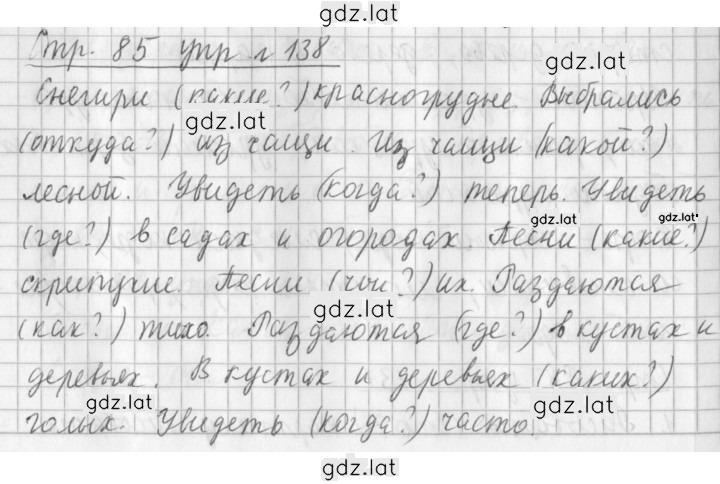 gdz.lat
Стр. 85 упр л 138
gdz.lat
Снегири (какие?) красногрудые. Выбрались
gdz.lat
(откуда?) из чащи. Из чащи (какой?)
лесной. Увидеть (когда?) теперь. Увидеть
gdz.lat gdz.lat
(где?) в садах и огородах. Песни (какие?)
скрипучие. Песни (чьи?) их. Раздаются
gdz.lat
(как?) тихо. Раздаются (где?) в кустах и
деревьях. В кустах и деревьях (каких?)
gdz.lat gdz.lat
голых. Увидеть (когда?) часто.
gdz.lat